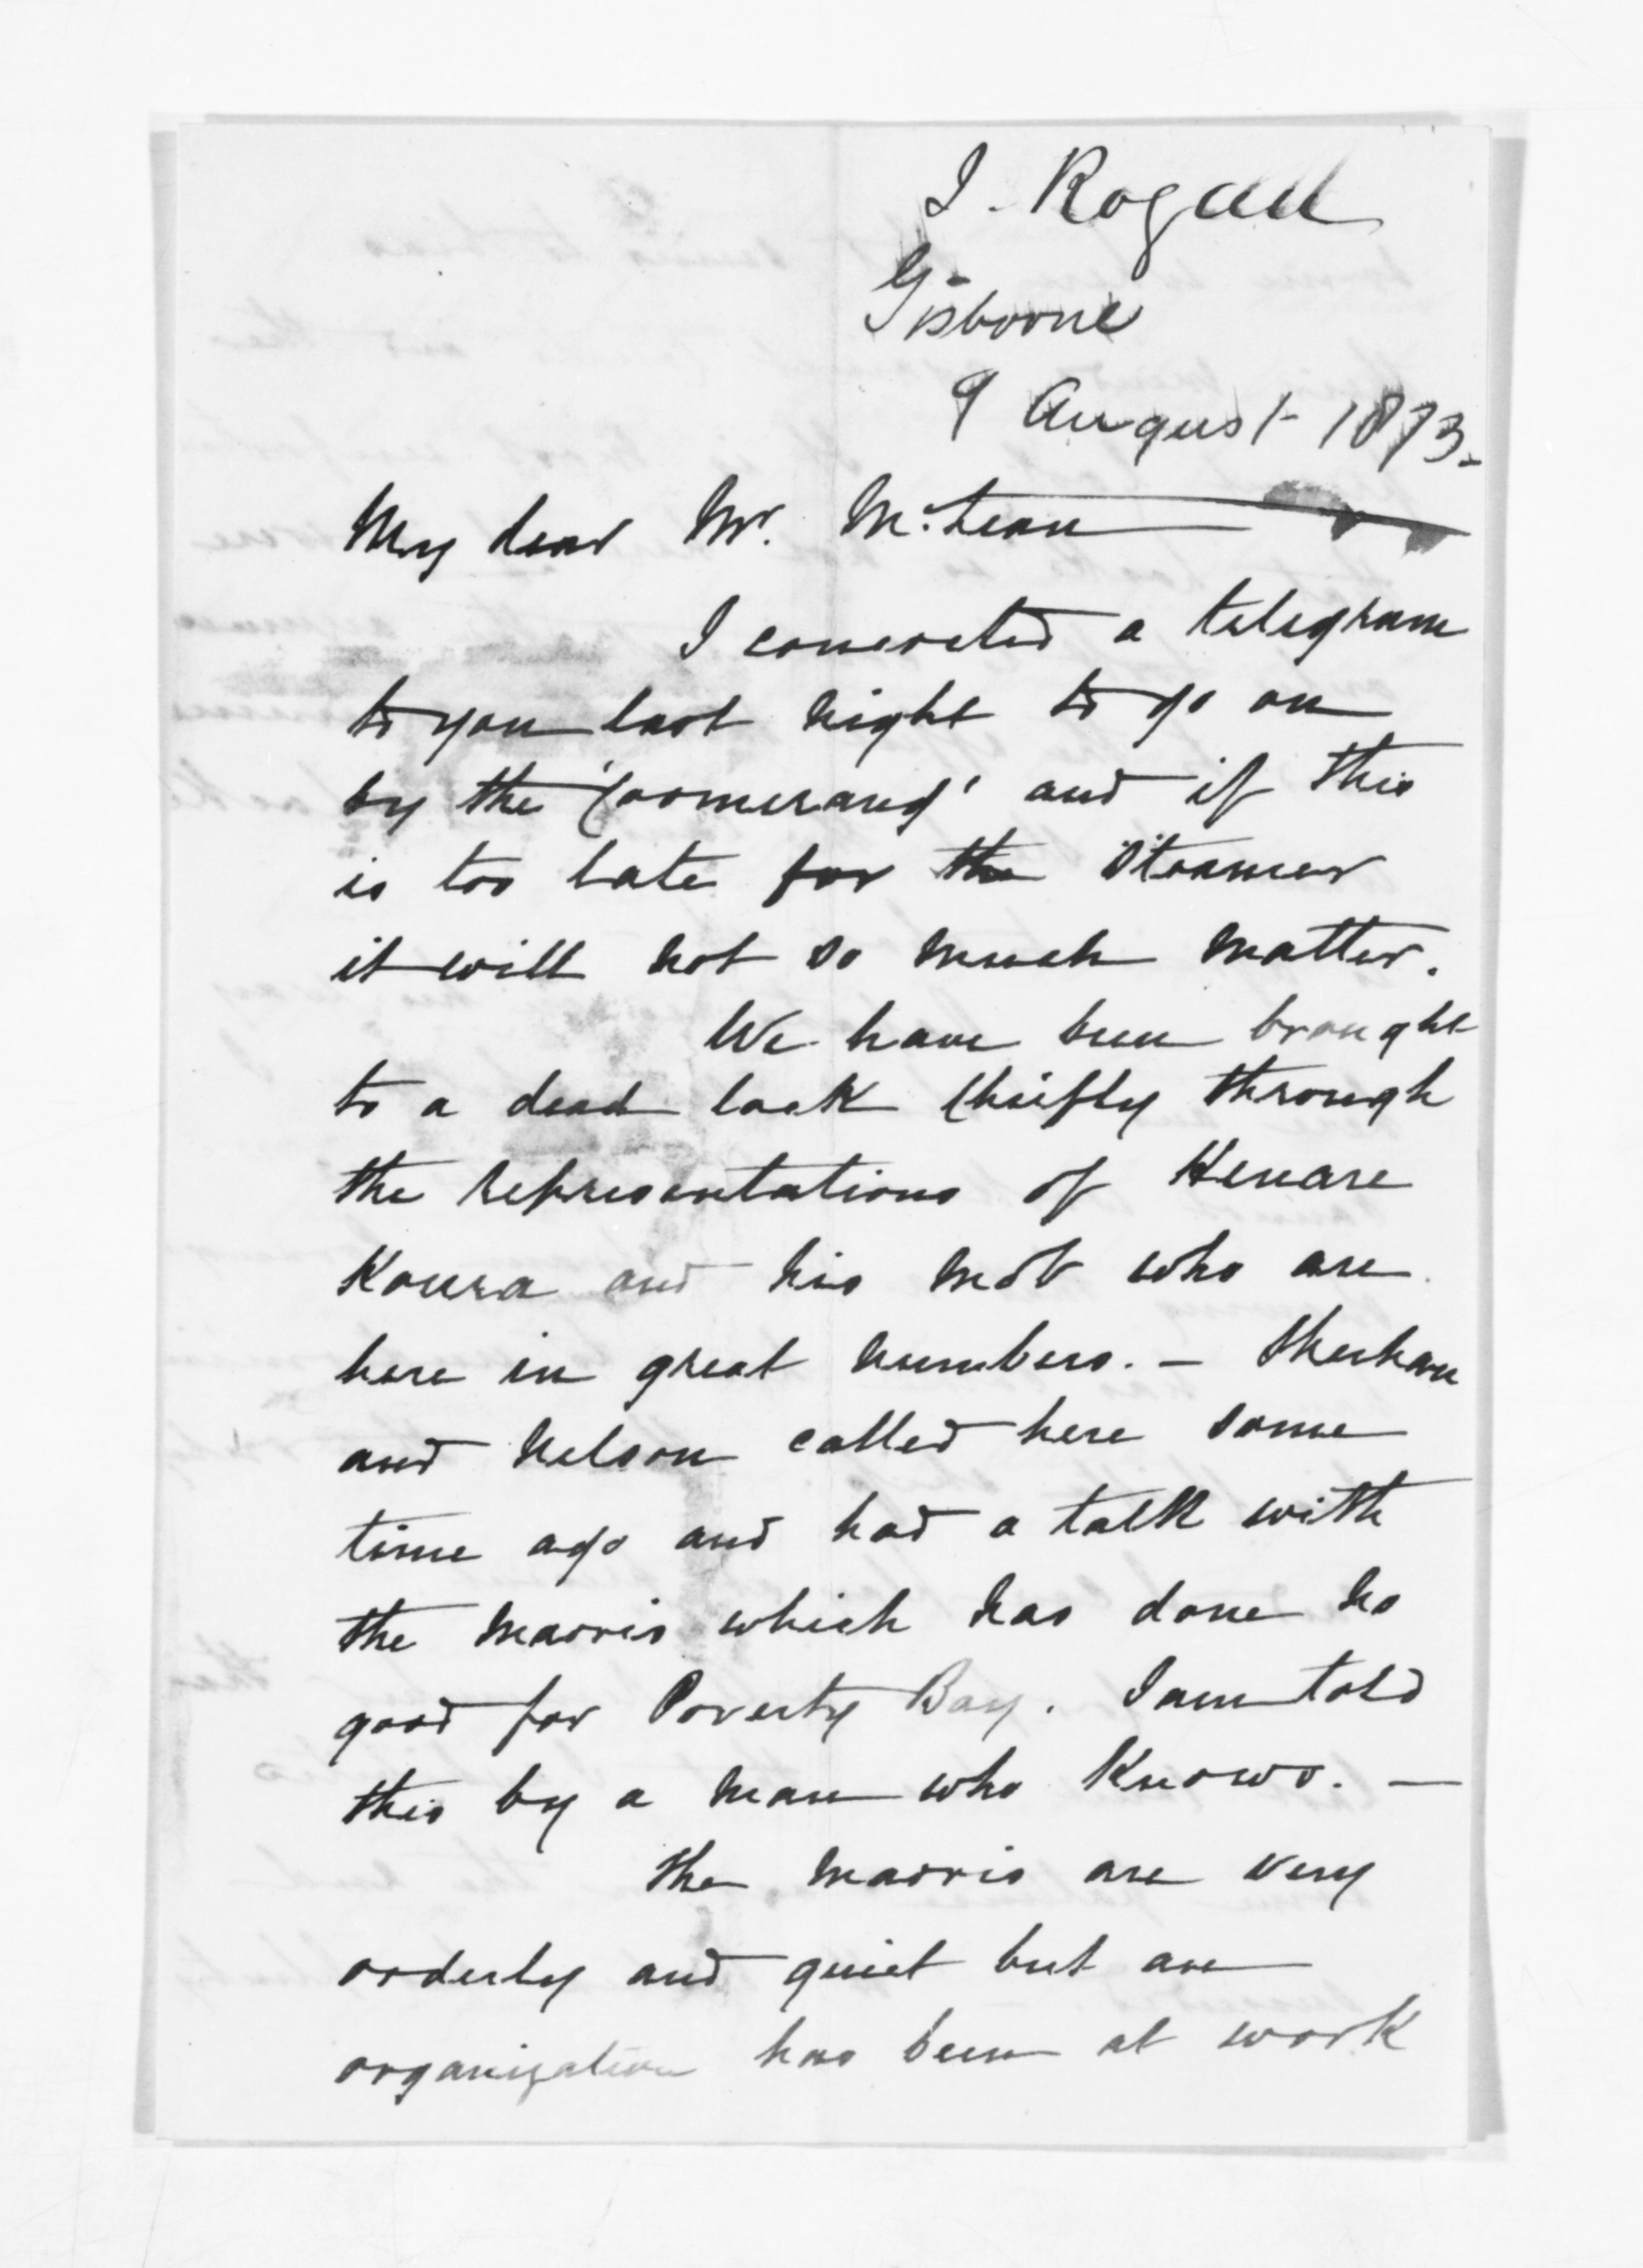 J. Rogan
Gisborne
9 August 1873.
My dear Mr. McLean
I concocted a telegram
to you last night to go on
by the 'Boomerang' and if this
is too late for the Steamer
it will not so much matter.
We have been brought
to a dead lock chiefly through
the representations of Henare
and his mob who are
here in great numbers. —
and Nelson called here some
time ago and had a talk with
the maoris which has done no
good for Poverty Bay. I am told
this by a man who knows. —
The maoris are very
orderly and quiet but an
organization has been at work